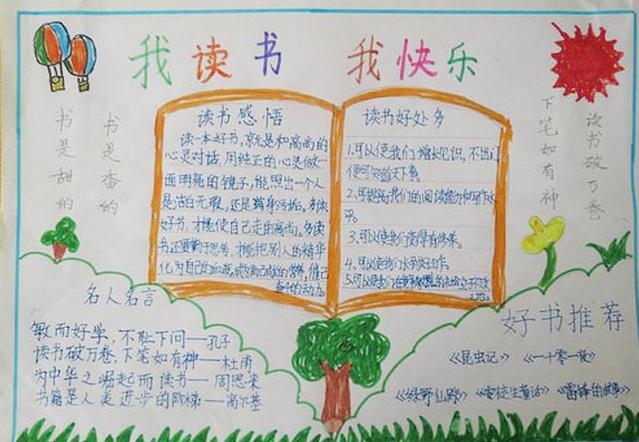 我读书 我快乐
书是甜的
书是香的
下笔如有神
读书破万卷
读书感悟
读一本好书,就是和高尚的
心灵对话,用纯正的心灵做一
面明亮的镜子,能照出一个人
是洁白无瑕,还是满身污垢。多读
好书,才能使自己走向高尚。多读
书还要勤于思考,才能把别人的精华
化为自己的血液,成为自己成的营养,催己
奋进的动力。
读书好处多
1.可以使我们增长见识,不出门
便可知道天下事。
2.可提高我们的阅读能力和写作水
平。
3.可以使我们变得有修养。
4.可以使我们
5.可以使我们
名人名言
敏而好学,不耻下问——孔子
读书破万卷,下笔如有神——杜甫
为中华之崛起而读书——周恩来
书籍是人类进步的阶梯——高尔基
好书推荐
《昆虫记》 《一千零一夜》
《绿野仙踪》 《安徒生童话》 《雷锋的故事》